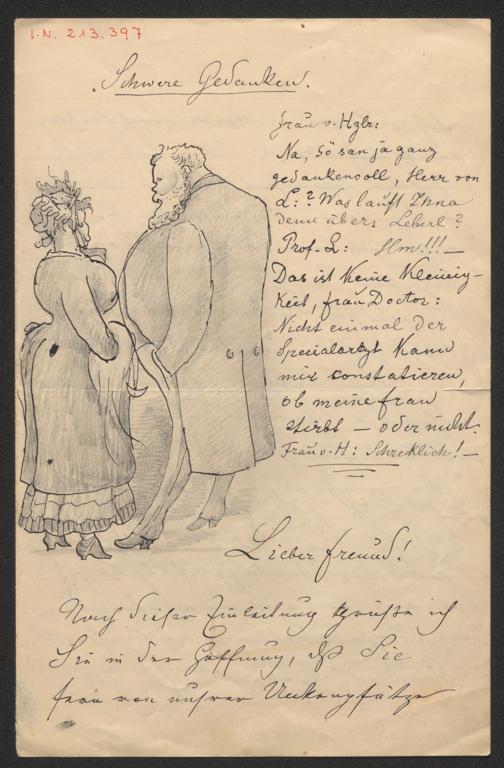 I.N. 213.397
Schwere Gedanken.
Frau v. Hzlr:
Na, Sö san ja ganz
gedankenvoll, Herr von
L:? Was lauft Ihna
denn übers Leberl?
Prof. L: Hm!!! —
Das ist keine Kleinig-
keit, Frau Doctor:
Nicht einmal der
Specialarzt kann
mir constatieren,
ob meine Frau
stirbt — oder nicht.
Frau v. H: Schrecklich! —
Lieber Freund!
Nach dieser Einleitung grüße ich
Sie in der Hoffnung, dß Sie
fern von unsrer